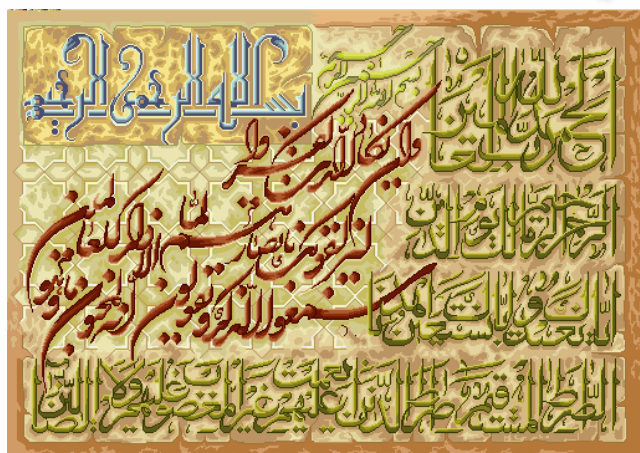 بسم الله الرحمن الرحيم
بسم الله الرحمن الرحيم
الحمد لله رب العالمين
الرحمن الرحيم مالك يوم الدين
اياك نعبد و اياك نستعين اهدنا
الصراط المستقيم صراط الذين انعمت عليهم غير المغضوب عليهم ولا الضالين
وان يكاد الذين كفروا
ليزلقونك بابصارهم لما
سمعوا الذكر و يقولون انه لمجنون وما هو
الا ذكر للعالمين